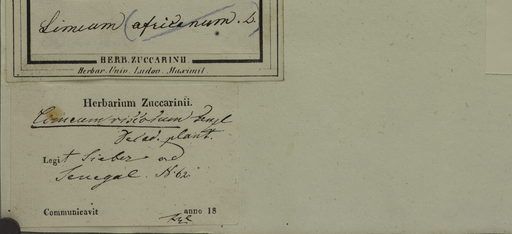 Limeum (africanum. L.
HERB. ZUCCARINII
Herbar. Univ. Ludov. Maximil.
Herbarium Zuccarinii.
Limeum viscosum Fenzl
plant.
Legit Sieber ad
Senegal. N 62.
Communicavit anno 18